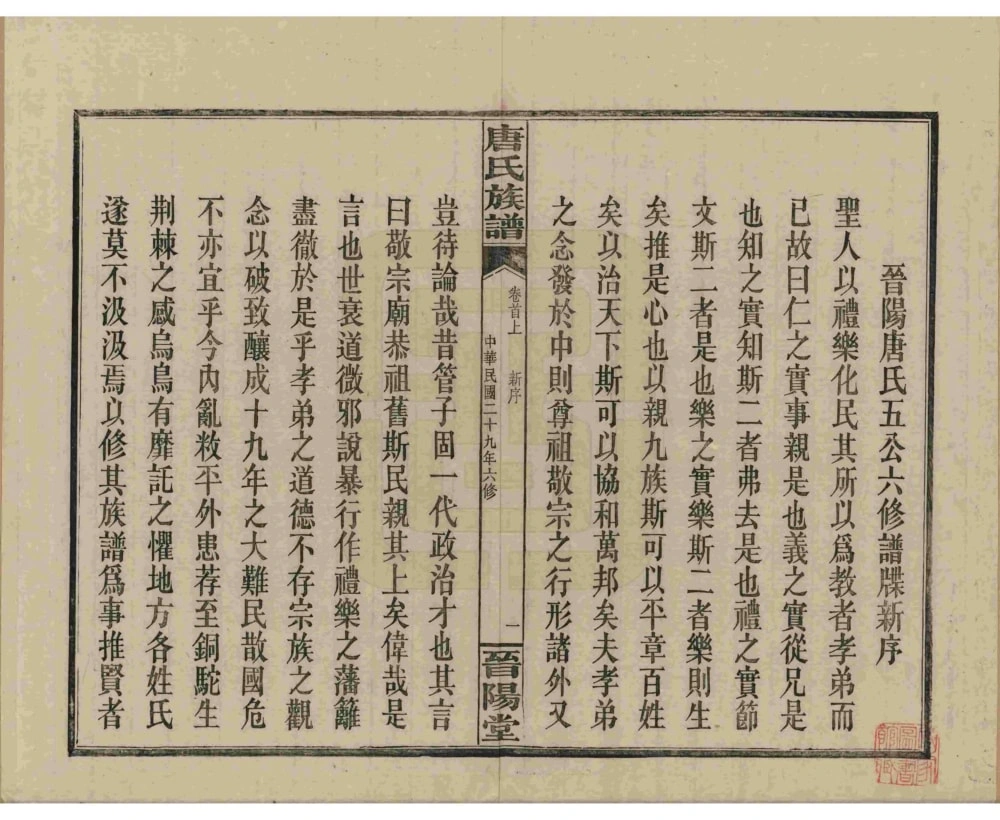 晉陽唐氏五公六修譜牒新序
聖人以禮樂化民其所以爲教者孝弟而
已故曰仁之實事親是也義之實從兄是
也知之實知斯二者弗去是也禮之實節
文斯二者是也樂之實樂斯二者樂則生
矣推是心也以親九族斯可以平章百姓
矣以治天下斯可以協和萬邦矣夫孝弟
之念發於中則尊祖敬宗之行形諸外又
唐氏族譜
卷首上 新序
中華民國二十九年六修
一
晉陽堂
豈待論哉昔管子固一代政治才也其言
曰敬宗廟恭祖舊斯民親其上矣偉哉是
言也世衰道微邪說暴行作禮樂之藩籬
盡徹於是乎孝弟之道德不存宗族之觀
念以破致釀成十九年之大難民散國危
不亦宜乎今內亂敉平外患荐至銅駝生
荆棘之感烏鳥有靡託之懼地方各姓氏
遂莫不汲汲焉以修其族譜爲事推賢者